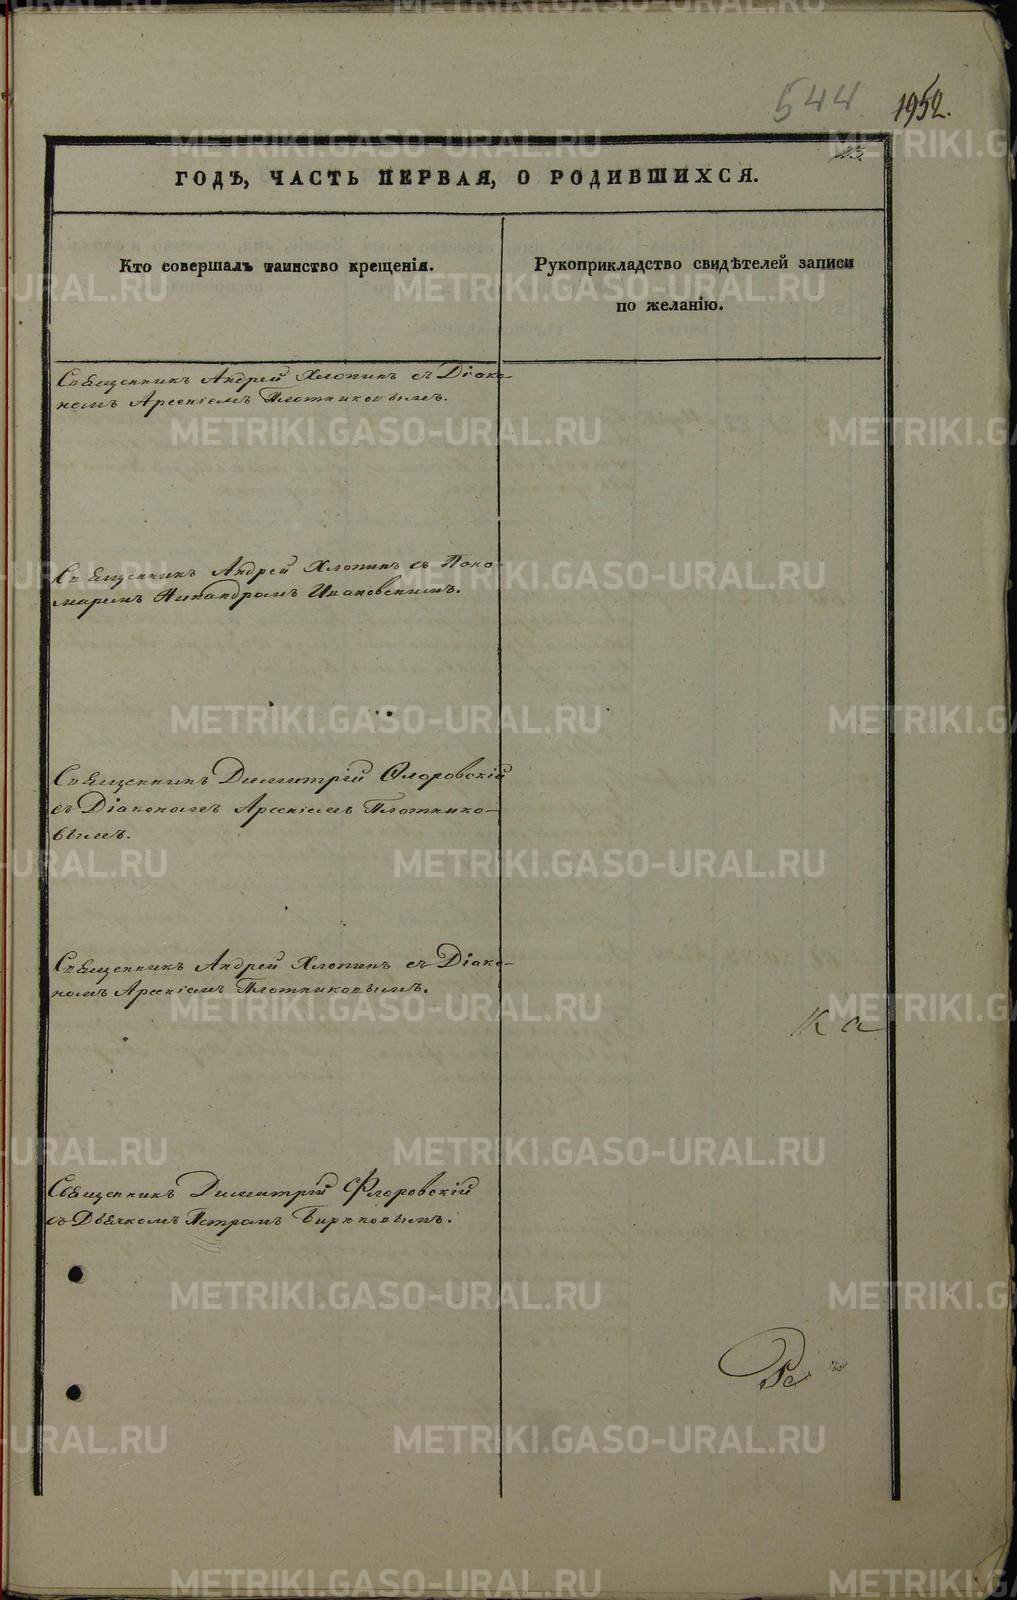 544 1952.
13.
ГОДѢ, ЧАСТЬ ПЕРВАЯ, О РОДИВШИХСЯ.
Кто совершалъ таинство крещенія.
Рукоприкладство свидѣтелей записи
по желанію.
Священникъ Андрей Хлопинъ съ Діако-
номъ Арсеніемъ Плотниковымъ.
Священникъ Андрей Хлопинъ съ Поно-
маремъ Никандромъ Ивановскимъ.
Священникъ Димитрій Флоровскій
съ Діакономъ Арсеніемъ Плотнико-
вымъ.
Священникъ Андрей Хлопинъ съ Діако-
номъ Арсеніемъ Плотниковымъ.
Ка
Священникъ Димитрій Флоровскій
съ Дьячкомъ Петромъ Бирюковымъ.
METRIKI.GASO-URAL.RU